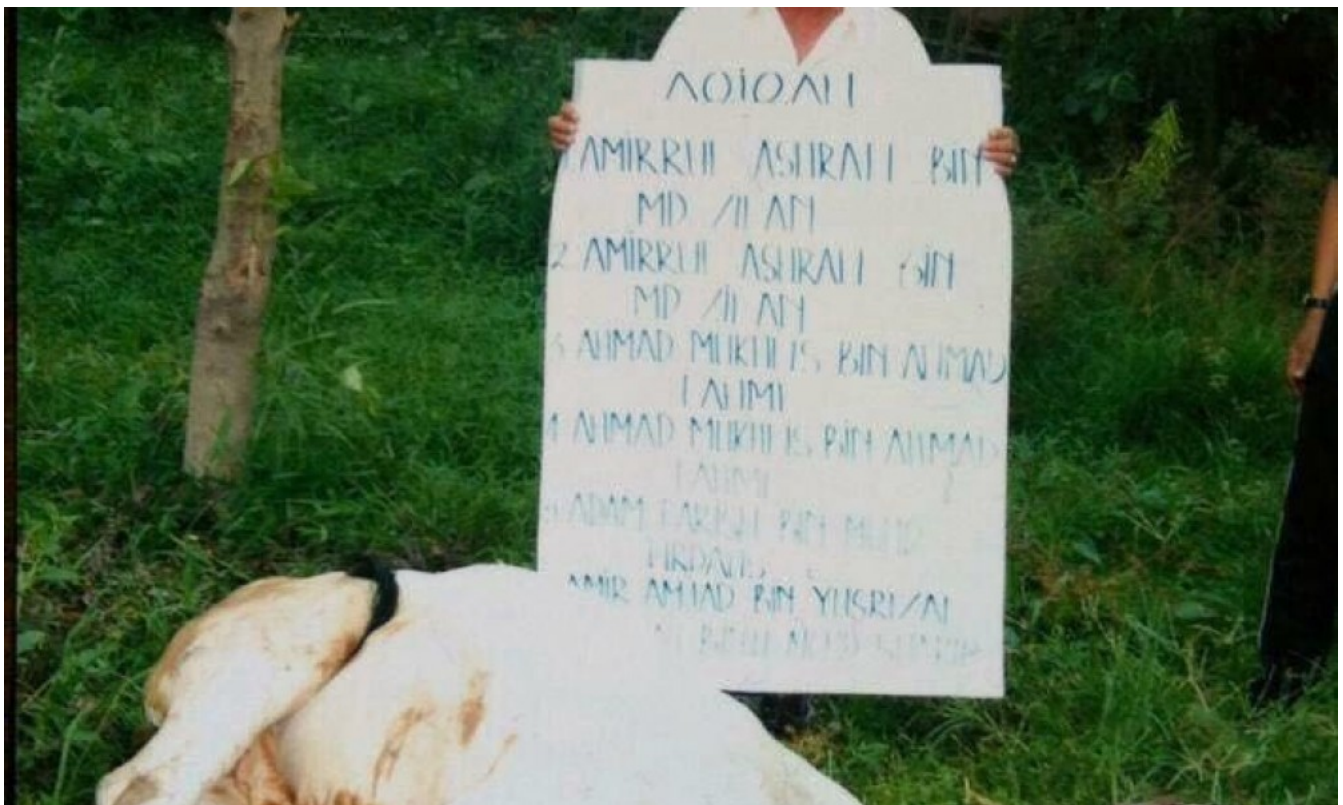 AQIQAH
AMIRRUL ASHRAFF BIN
MD ZILAN
2 AMIRRUL ASHRAFF BIN
MD ZILAN
3 AHMAD MUKHLIS BIN AHMAD
FAHMI
4 AHMAD MUKHLIS BIN AHMAD
FAHMI
ADAM FARISH BIN MUHD
FIRDAUS
AMIR AMJAD BIN YUSRIZAL